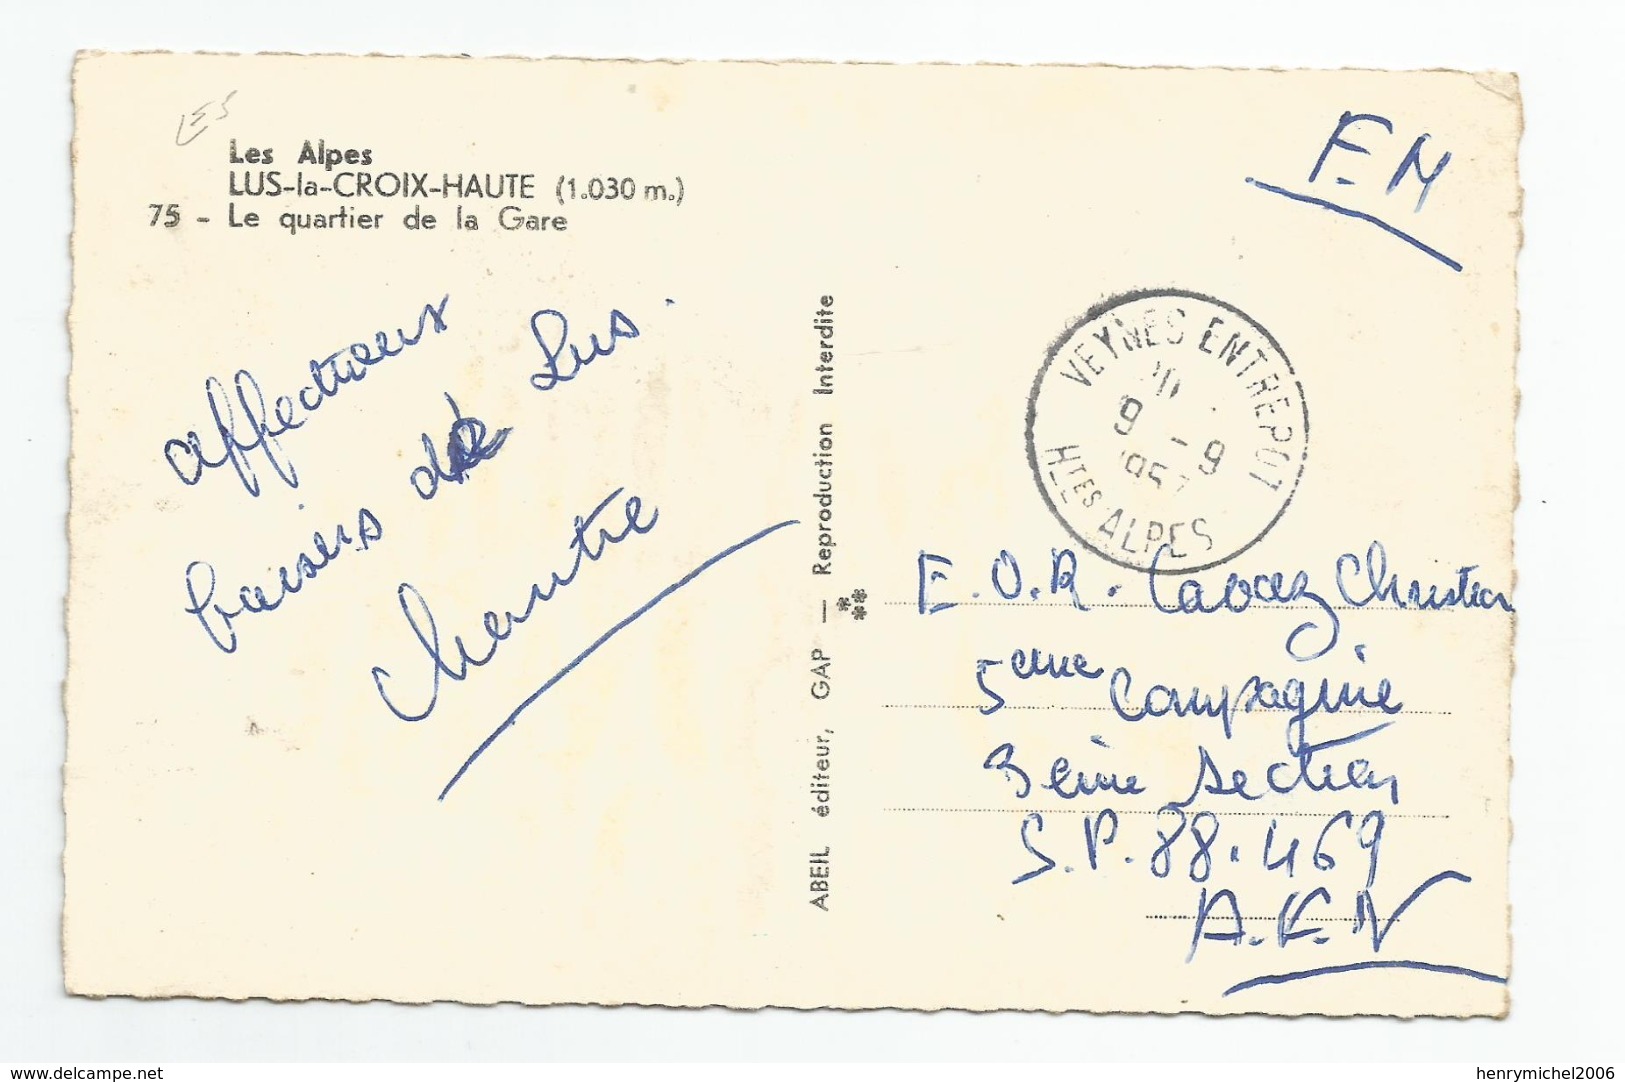 LES
Les Alpes
LUS-la-CROIX-HAUTE (1.030 m.)
75 - Le quartier de la Gare
affectueux
baisers de Lus.
F.M
VEYNES ENTREPOT
9 - 9
1957
HTES ALPES
ABEIL éditeur, GAP — Reproduction Interdite
E.O.R. Christian
5eme Compagnie
3eme section
S.P. 88.469
A.F.N
delcampe.net
henrymichel2006